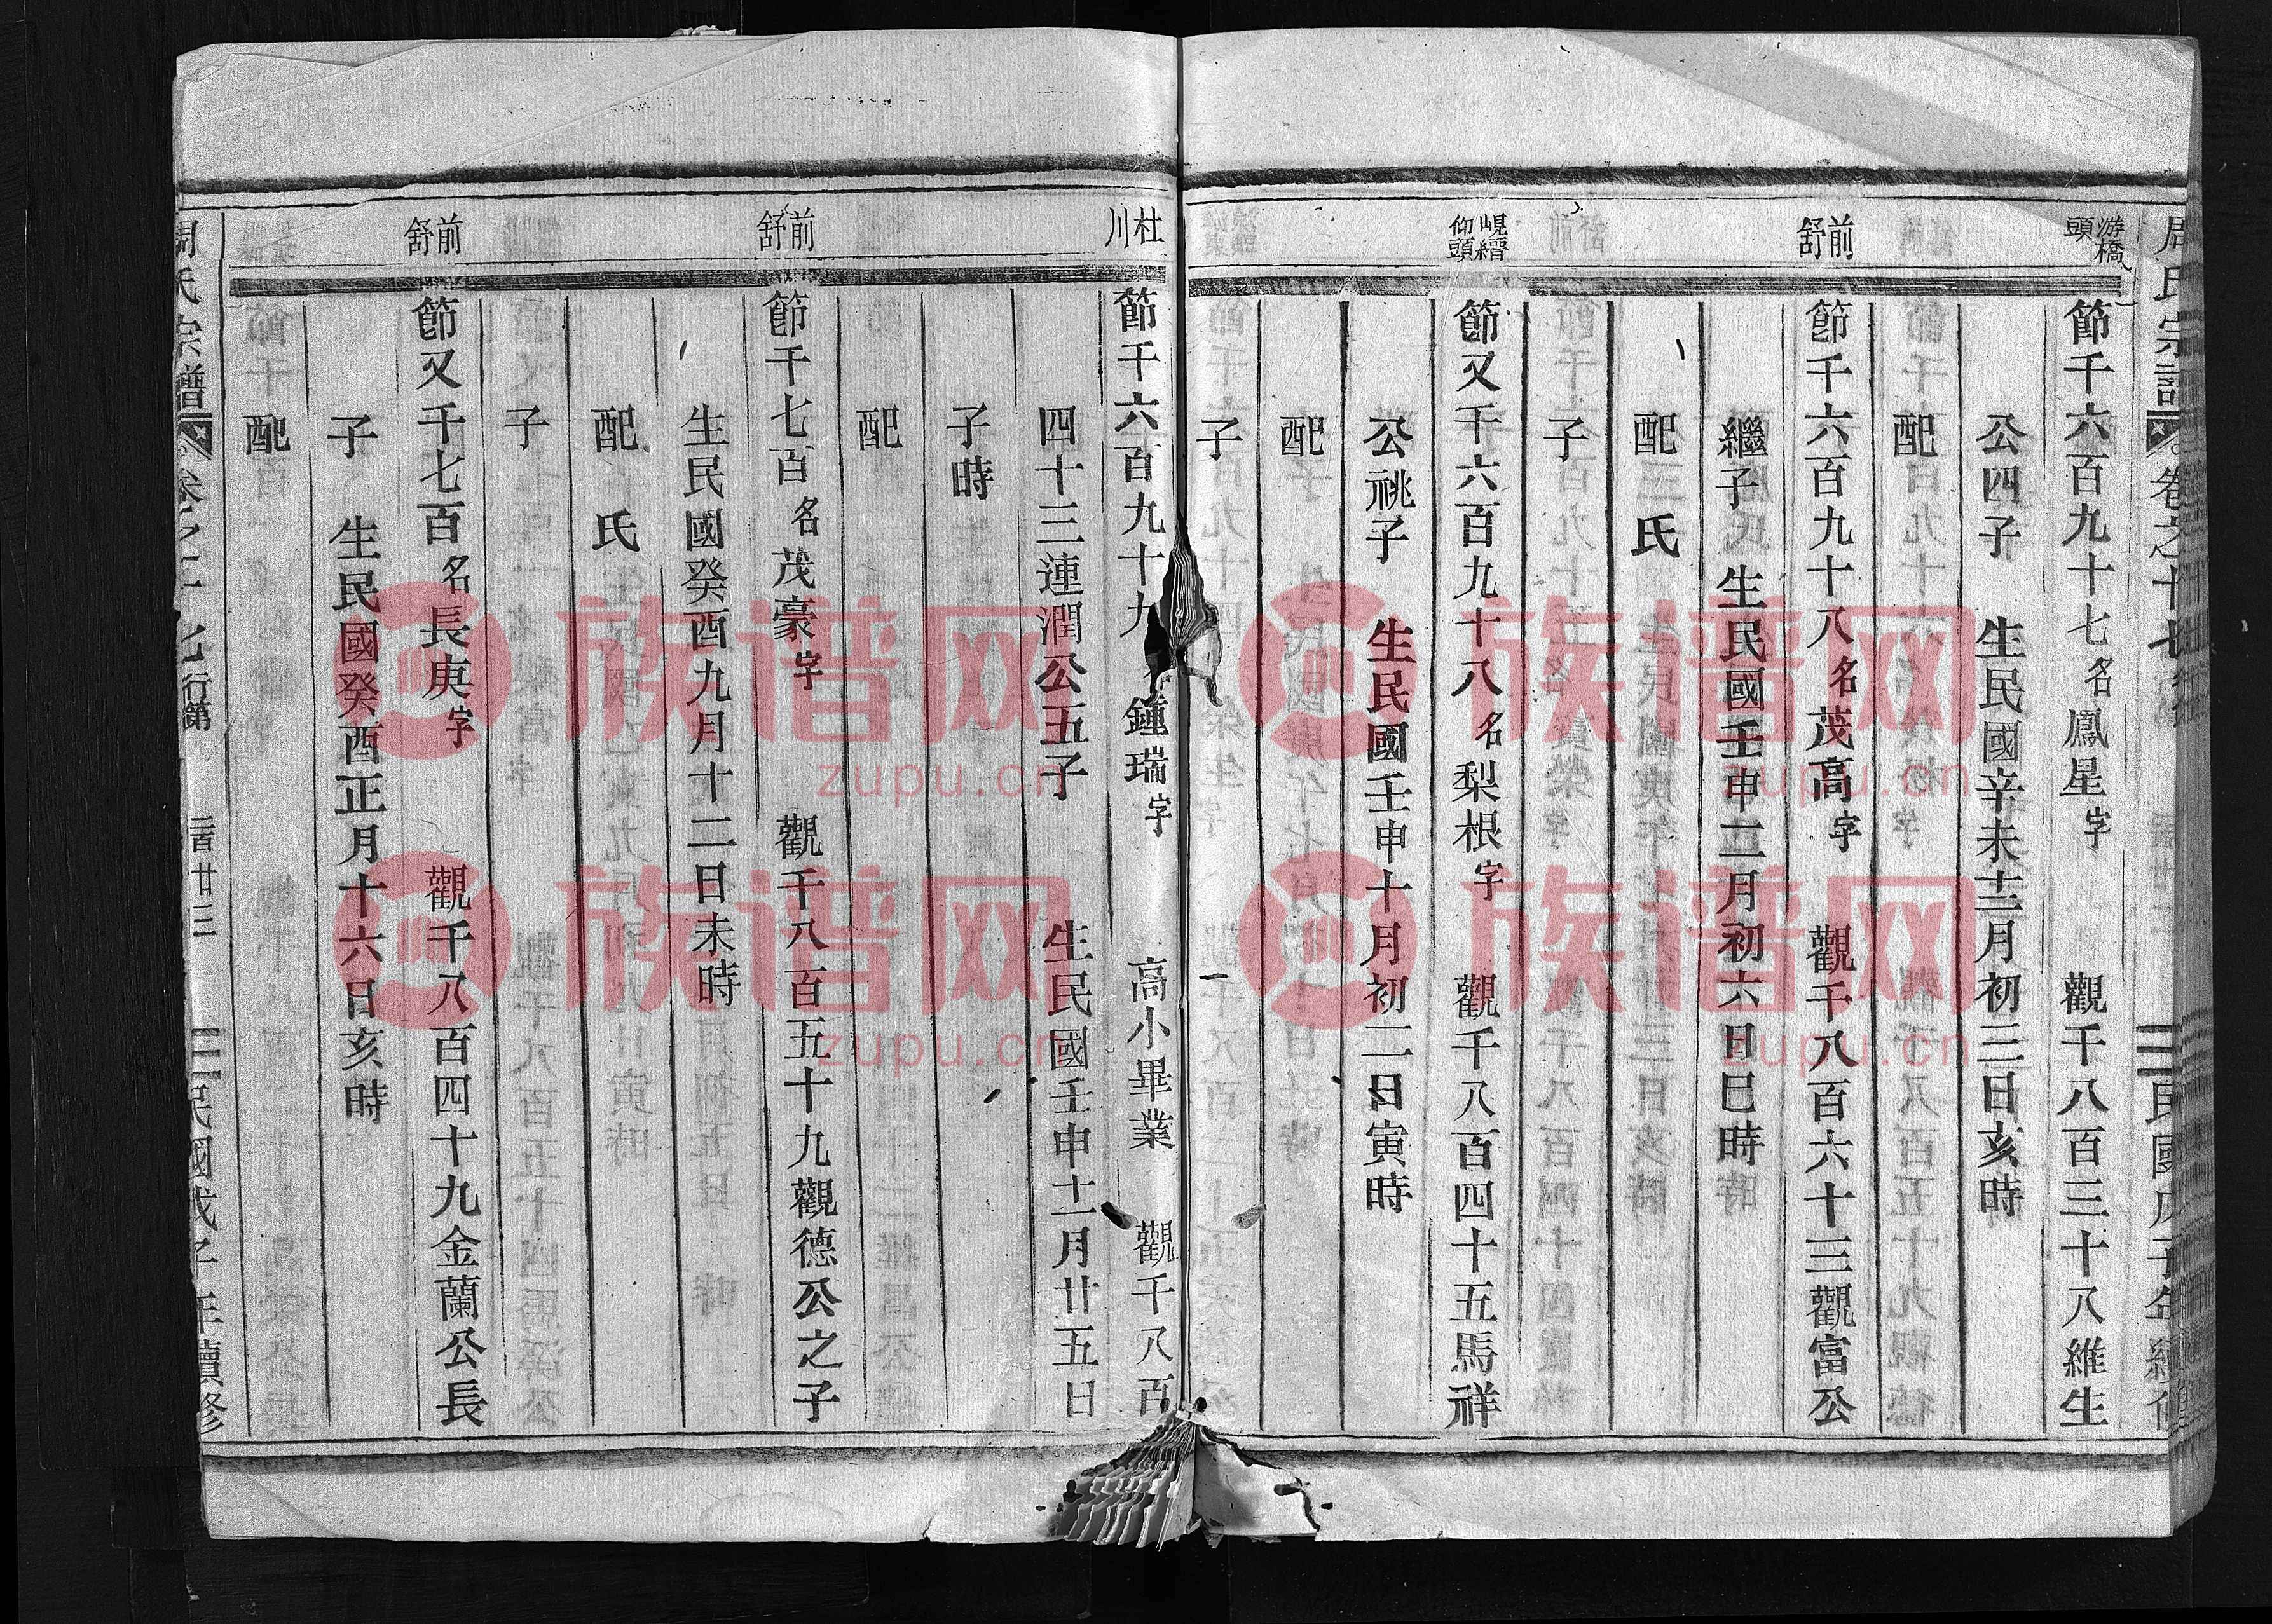 周氏宗譜 卷之十七 行第 民國戊子年續修
游橋頭
節千六百九十七名鳳星字 觀千八百三十八維生
公四子 生民國辛未十二月初三日亥時
配
前舒
節千六百九十八名茂高字 觀千八百六十三觀富公
繼子 生民國壬申二月初六日巳時
配 氏
子
峴縉仰頭
節又千六百九十八名梨根字 觀千八百四十五馬祥
公祧子 生民國壬申十月初二日寅時
配
子
杜川
節千六百九十九名鍾瑞字 高小畢業 觀千八百
四十三連潤公五子 生民國壬申十一月廿五日
子時
配
前舒
節千七百名茂豪字 觀千八百五十九觀德公之子
生民國癸酉九月十二日未時
配 氏
子
前舒
節又千七百名長庚字 觀千八百四十九金蘭公長
子 生民國癸酉正月十六日亥時
配
周氏宗譜 卷之十七 行第 二百廿三 民國戊子年續修
族谱网
zupu.cn
族谱网
zupu.cn
族谱网
zupu.cn
族谱网
zupu.cn